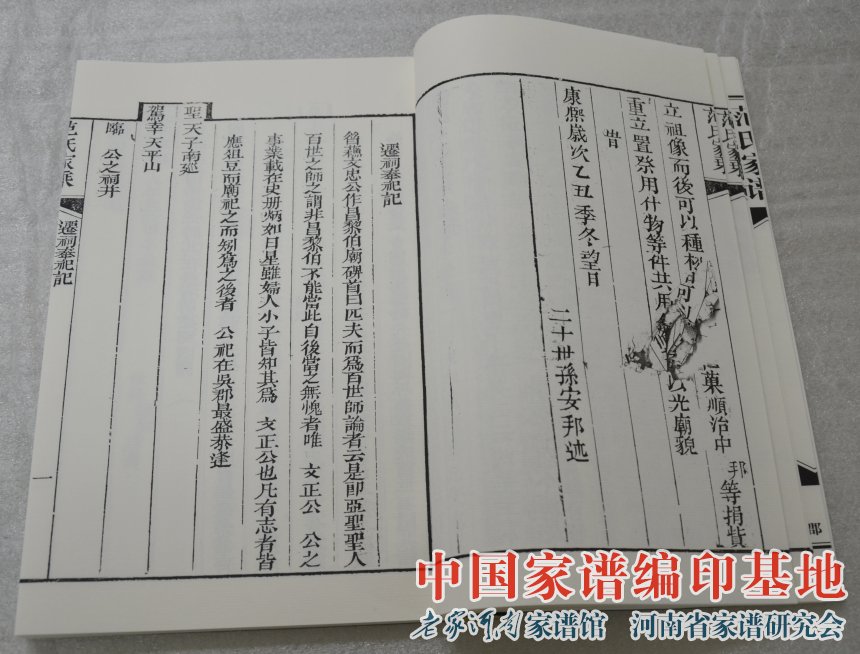 范氏家谱
菓順治中
邦等捐貲
立祖像而後可以種
光廟貌
重立置祭用什物等件共用
昔
康熙歲次乙丑季冬望日
二十世孫安邦述
遷祠奉祀記
昔蘇文忠公作昌黎伯廟碑首曰匹夫而爲百世師論者云是即亞聖聖人
百世之師之謂非昌黎伯不能當此自後當之無愧者唯 文正公 公之
事業載在史册炳如日星雖婦人小子皆知其爲 文正公也凡有志者皆
應俎豆而廟祀之而矧爲之後者 公祀在吳郡最盛恭逢
聖天子南巡
駕幸天平山
臨 公之祠并
范氏家乘
遷祠奉祀記
一
中国家谱编印基地
老家河南家谱馆 河南省家谱研究会